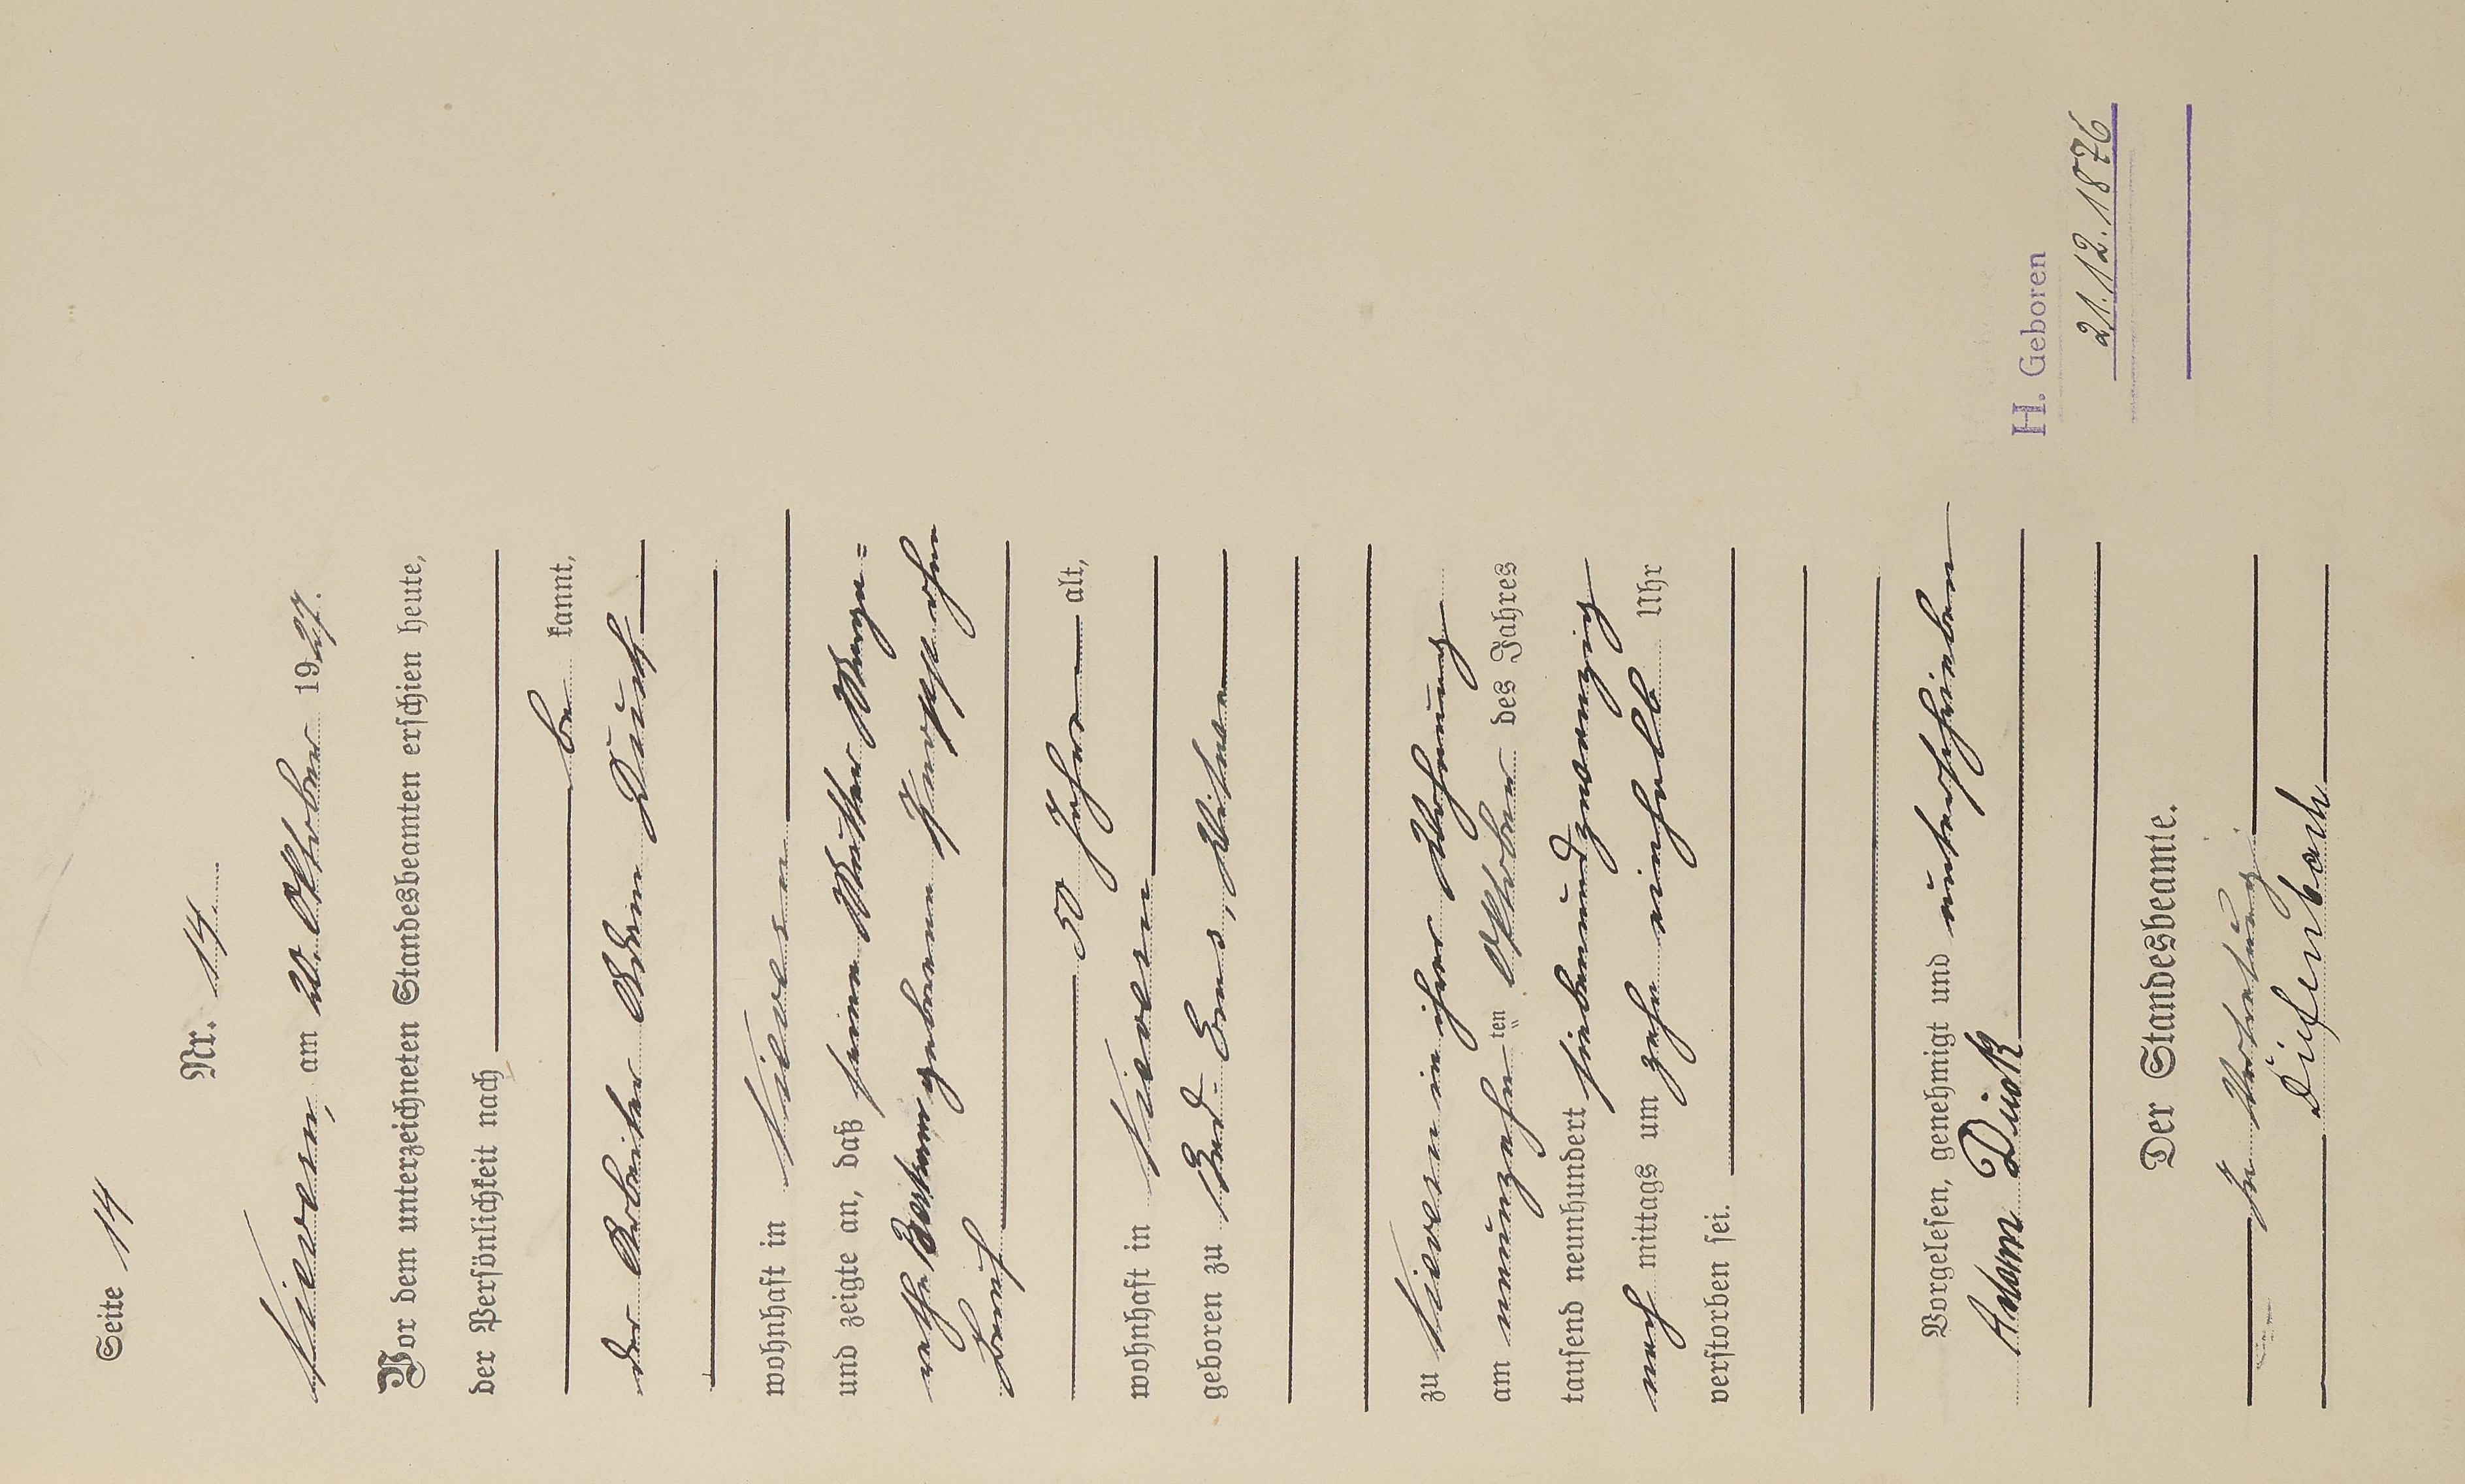 Seite 14
Nr. 14.
Nievern, am 20. Oktober 1927.
Vor dem unterzeichneten Standesbeamten erschien heute,
der Persönlichkeit nach
be kannt,
der Arbeiter Adam
wohnhaft in Nievern
und zeigte an, daß seine Mutter Marga=
retha Bertram geborene ohne
Beruf
50 Jahre alt,
wohnhaft in Nievern
geboren zu Bad-Ems, Witwe
zu Nievern in ihrer Wohnung
am neunzehn ten Oktober des Jahres
tausend neunhundert siebenundzwanzig
nach mittags um zehn einhalb Uhr
verstorben sei.
Vorgelesen, genehmigt und unterschrieben
Adam
H. Geboren
21.12.1876
Der Standesbeamte.
In Vertretung.
Diefenbach